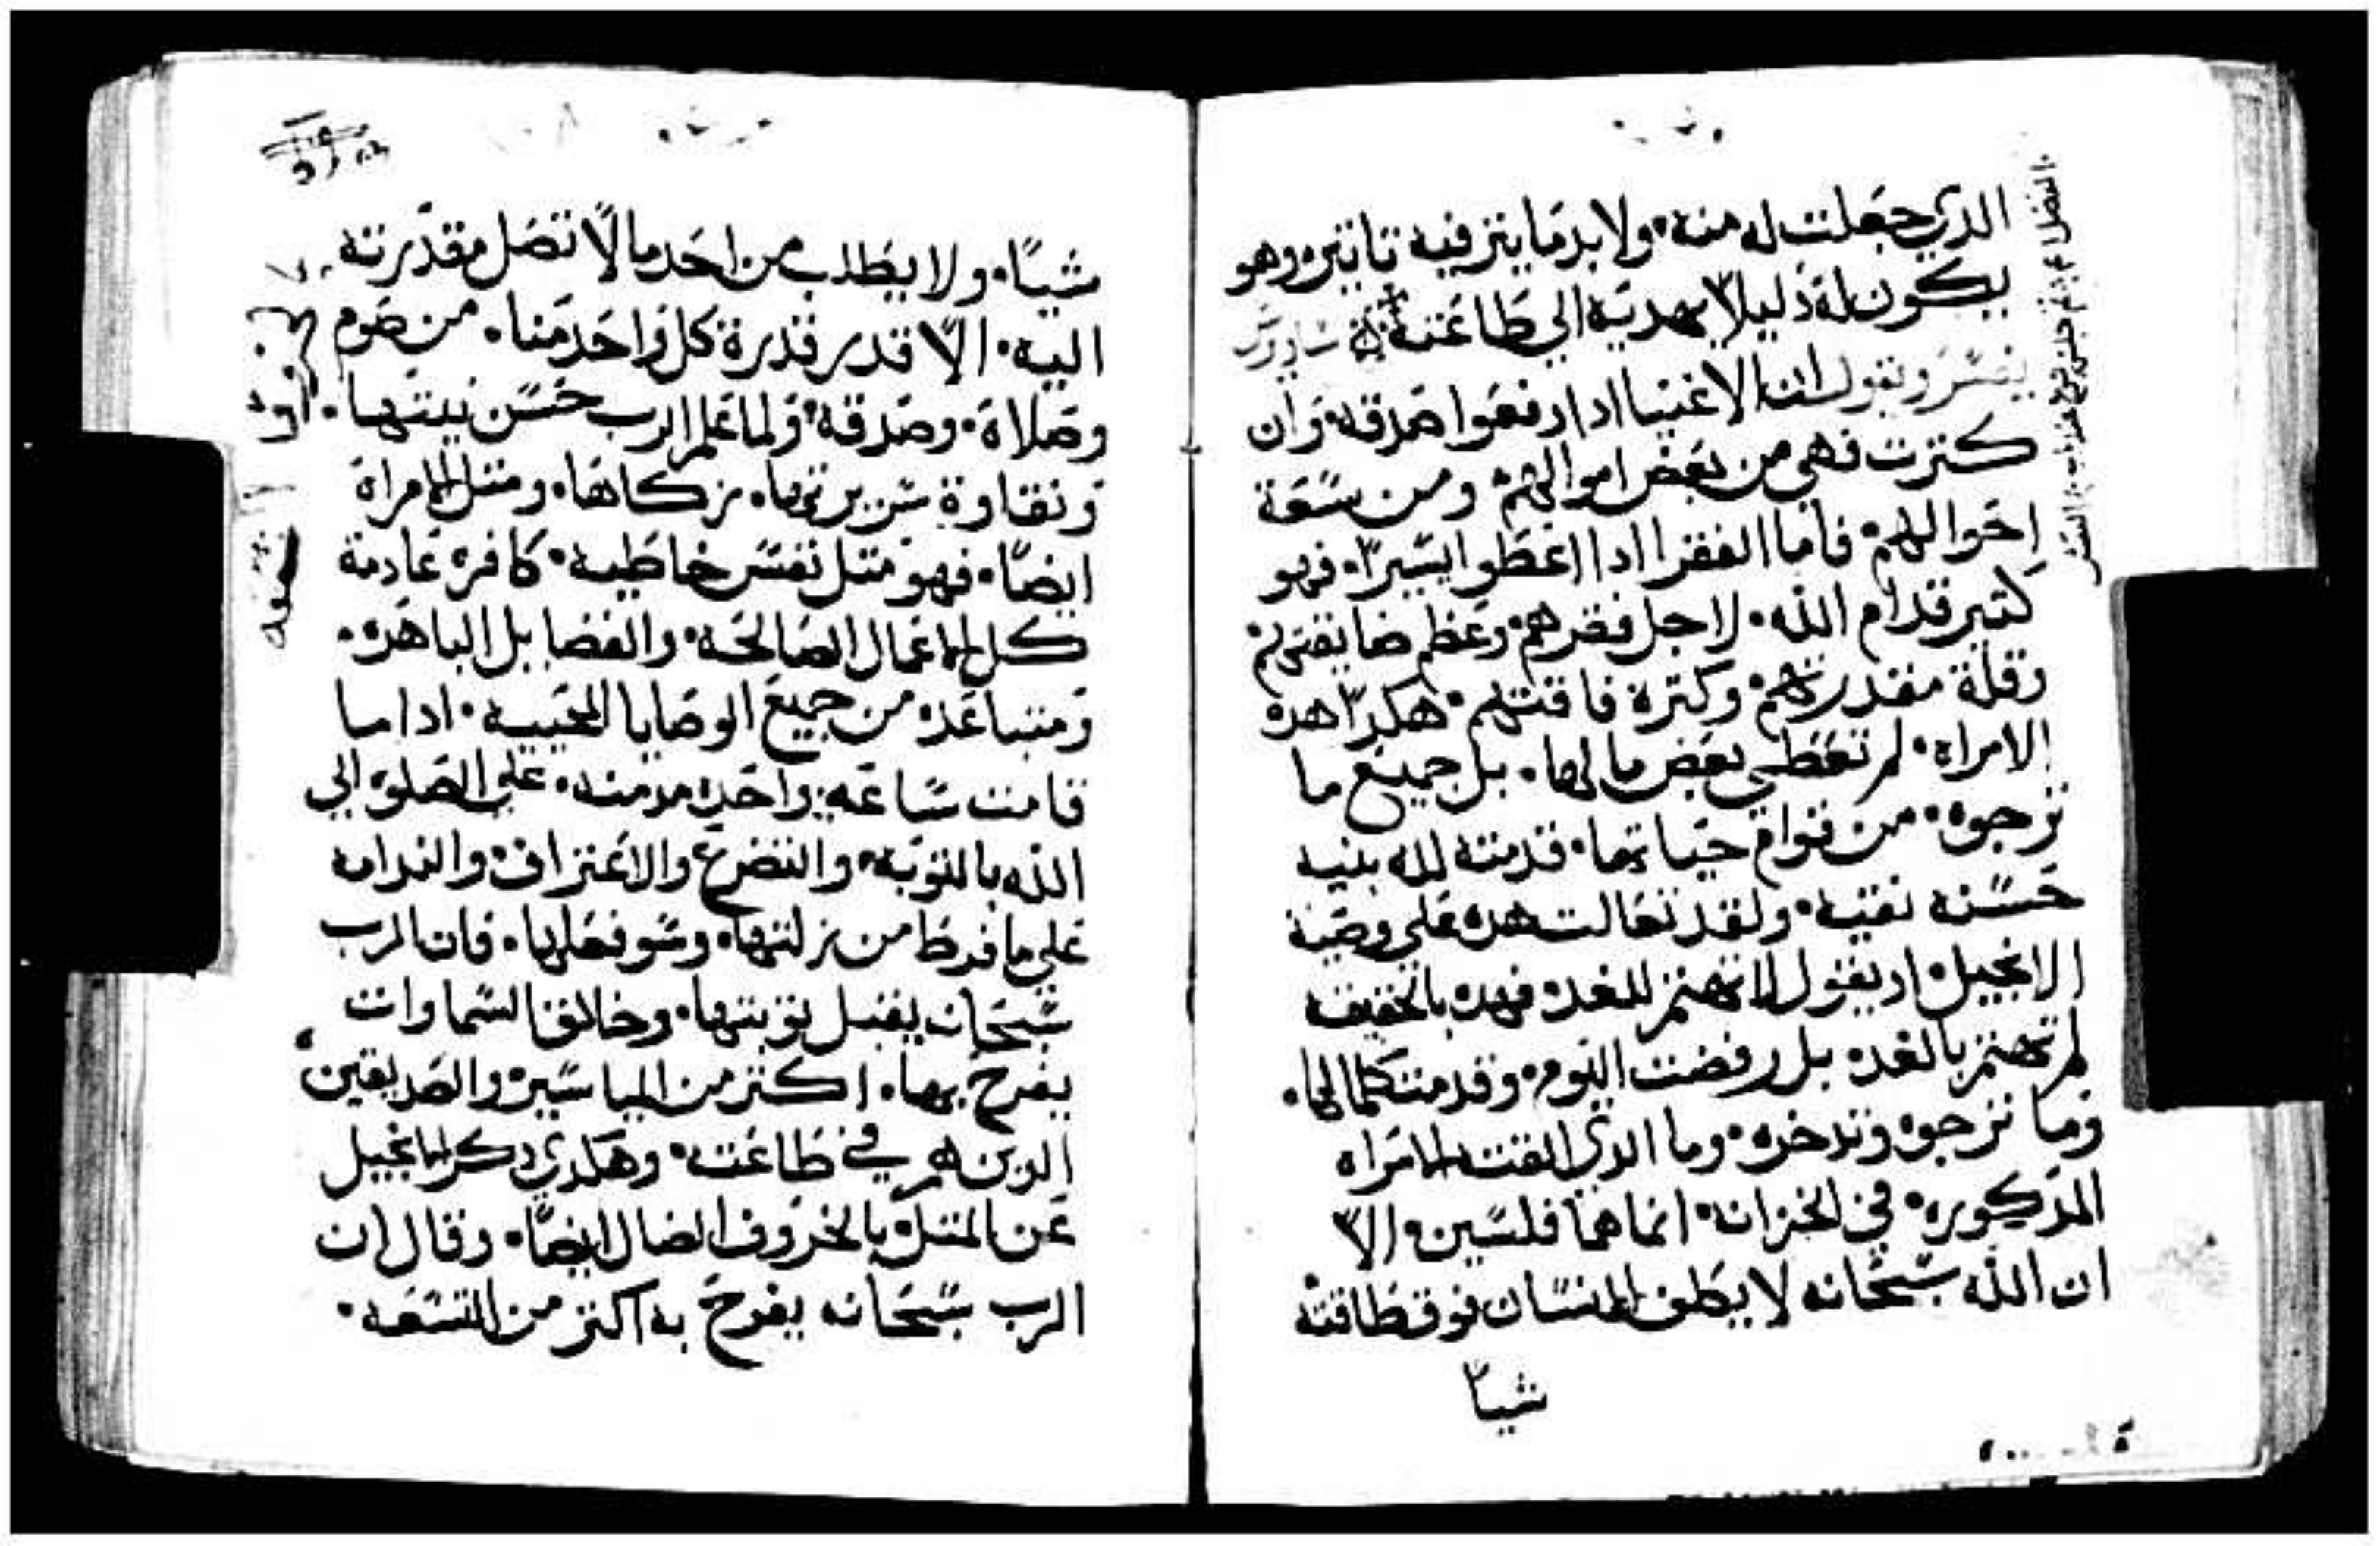 الدي جعلت له منه ولابد ما يتر فيه تاتير وهو
يكون له دليلاً يهديه الي طاعته ساويرس
يفسر ويقول ان الاغنيا ادا دفعوا صدقه وان
كترت فهي من بعض اموالهم ومن سعة
احوالهم فاما الفقرا ادا اعطوا يسيراً فهو
كتير قدام الله لاجل فقرهم وعظم ضايقتهم
وقلة مقدرتهم وكترة فاقتهم هكداً هده
الامراه لم تعطي بعض مالها بل جميع ما
ترجوه من قوام حياتها قدمته لله بنيه
حسنه نقيه ولقد تعالت هده علي وصية
الانجيل اد يقول لا تهتم للغد فهده بالحقيقه
لم تهتم بالغد بل رفضت اليوم وقدمت كلما لها
وما ترجوه وتدخره وما الدي القت الامراه
المدكوره في الخزانه انما هما فلسين الا
ان الله سبحانه لا يكلف الانسان فوق طاقته
شياً
شياً ولا يطلب من احد ما لا تصل مقدرته
اليه الا قدر قدرة كل واحد منا من صوم
وصلاة وصدقه ولما علم الرب حسن نيتها
ونقاوة سريرتها زكاها ومتل الامراة
ايضاً فهو متل نفس خاطيه كافره عادمة
كل الاعمال الصالحه والفضايل الباهره
ومتباعده من جميع الوصايا المحييه ادا ما
قامت ساعه واحده مدمنه علي الصلوه الي
الله بالتوبه والتضرع والاعتراف والندامه
علي ما فرط من زلتها وسو فعلها فان الرب
سبحانه يقبل توبتها وخالق السماوات
يفرح بها اكتر من المياسير والصديقين
الدين هم في طاعته وهكدي دكر الانجيل
عن المتل بالخروف الضال ايضاً وقال ان
الرب سبحانه يفرح به اكتر من التسعه